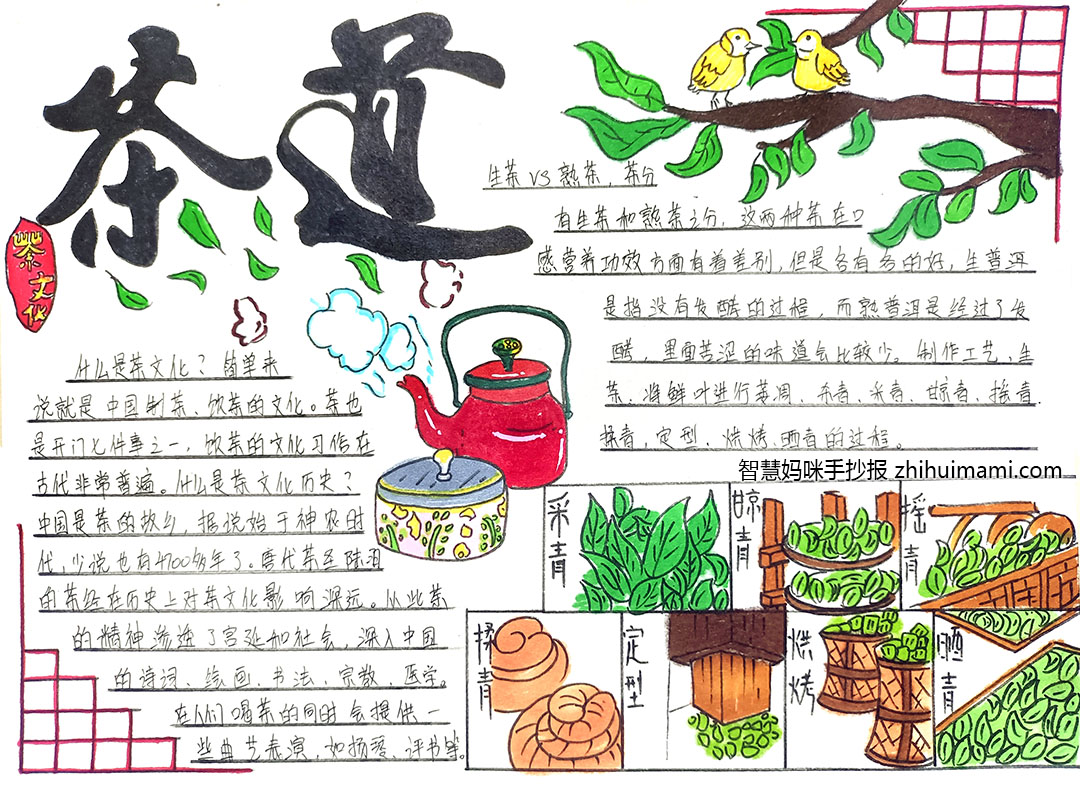 茶道
茶文化
什么是茶文化?简单来
说就是中国制茶、饮茶的文化。茶也
是开门七件事之一,饮茶的文化习俗在
古代非常普遍。什么是茶文化历史?
中国是茶的故乡,据说始于神农时
代,少说也有4700多年了。唐代茶圣陆羽
的茶经在历史上对茶文化影响深远。从此茶
的精神渗透了宫廷和社会,深入中国
的诗词、绘画、书法、宗教、医学。
在人们喝茶的同时会提供一
些曲艺表演,如扬琴、评书等。
生茶VS熟茶,茶分
有生茶和熟茶之分,这两种茶在口
感营养功效方面有着差别,但是各有多的好,生普洱
是指没有发酵的过程,而熟普洱是经过了发
酵,里面苦涩的味道会比较少。制作工艺,生
茶、将鲜叶进行萎凋、杀青、采青、晾青、摇青、
揉青、定型、烘烤、晒青的过程。
智慧妈咪手抄报 zhihuimami.com
采青
晾青
摇青
揉青
定型
烘烤
晒青